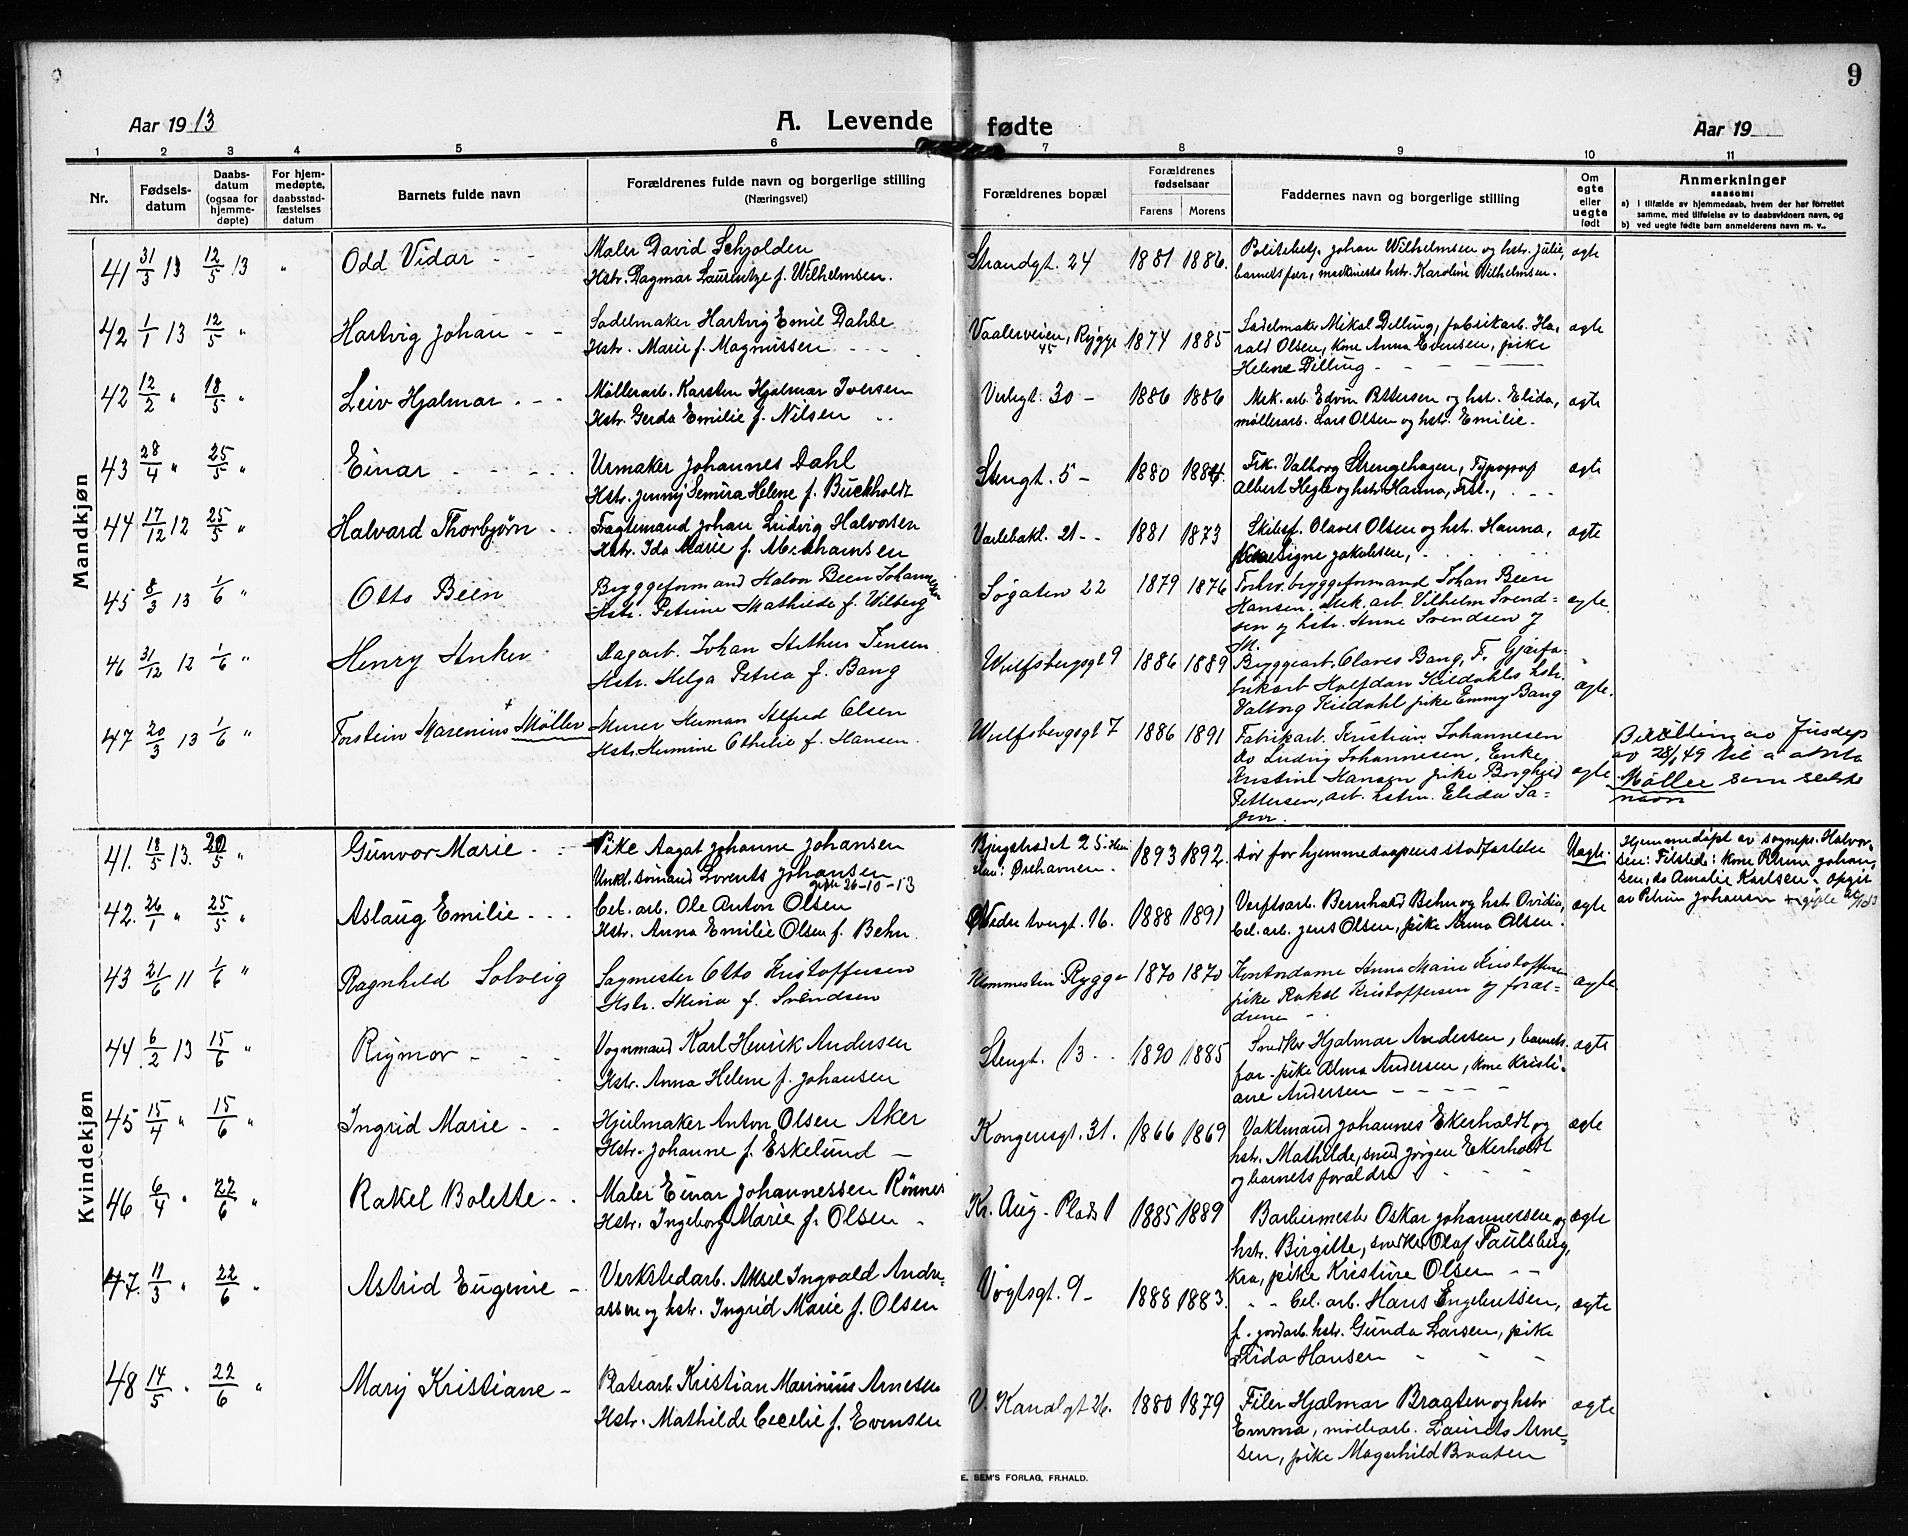 9
Aar 19 13
A. Levende fødte
Aar 19
1 2 3 4 5 6 7 8 9 10 11
Nr.
Fødsels-
datum
Daabs-
datum
(ogsaa for
hjemme-
døpte)
For hjem-
medøpte,
daabsstad-
fæstelses
datum
Barnets fulde navn
Forældrenes fulde navn og borgerlige stilling
(Næringsvei)
Forældrenes bopæl
Forældrenes
fødselsaar
Farens Morens
Faddernes navn og borgerlige stilling
Om
egte
eller
uegte
født
Anmerkninger
saasom:
a) i tilfælde av hjemmedaab, hvem der har forrettet
samme, med tilføielse av to daabsvidners navn, og
b) ved uegte fødte barn anmelderens navn m. v..
Mandkjøn
41 31/3 13 12/5 13 " Odd Vidar - - Maler David Schjolden Strandgt. 24 1881 1886. Politibetj. Johan Wilhelmsen og hstr. Julie, ægte
Hstr. Dagmar Laurentze f. Wilhelmsen. barnets far, hstr. Karoline Wilhelmsen.
42 1/1 13 12/5 " Hartvig Johan - - Sadelmaker Hartvig Emil Dahle Vaalerveien, Rygge 1874 1885 Sadelmaker Mikal Dilling, fabrikarb. Ha- ægte
Hstr. Marie f. Magnussen - - 45 rald Olsen, kone Anna Evensen, pike
Helene Dilling - - - -
42 12/2 " 18/5 " Leiv Hjalmar - - Møllerarb. Karsten Hjalmar Iversen Verlegt. 30 - 1886 1886 Mek. arb. Edvin Pettersen og hstr. Elida, ægte
Hstr. Gerda Emilie f. Nilsen møllerarb. Lars Olsen og hstr. Emilie.
43 28/4 " 25/5 " Einar - - - - Urmaker Johannes Dahl Stengt. 5 - 1880 1884. Frk. Valborg Strengehagen, Typograf ægte
Hstr. Jenny Semira Helene f. Buckholdt Albert Hegle og hstr. Hanna,
44 17/12 12 25/5 " Halvard Thorbjørn - Fragtemand Johan Ludvig Halvorsen Varlebakl. 21 - - 1881 1873 Skibsf. Olaves Olsen og hstr. Hanna, ægte
Hstr. Ida Marie f. Signe Jakobsen,
45 8/3 13 1/6 " Otto Been Bryggeformand Halvor Been Johannesen Søgaten 22 1879 1876 Forhv. bryggeformand Johan Been ægte.
Hstr. Petrine Mathilde f. Wiberg Hansen. Mek. arb. Vilhelm Svend-
sen og hstr. Anne Svendsen og
M.
46 31/12 12 1/6 " Henry Anker Aagarb. Johan Arthur Jensen Wulfsbergsgt 9 1886 1889 Bryggearb. Olaves Bang, F.
Hstr. Helga Petrea f. Bang brikarb. Halfdan Kildahls hstr. ægte.
Valborg Kildahl pike Emmy Bang
47 20/3 13 1/6 " Torstein Marenius + Møller Murer Herman Alfred Olsen Wulfsbergsgt 7 1886 1891 Fabrikarb. Kristian Johannesen
Hstr. Hermine Othelie f. Hansen. do Ludvig Johannesen, Enke
Kristine Hansen pike Borghild ægte
Pettersen, arb. hstr. Elida Sa-
ger.
Bevilling av Jusdep
av 28/1 49 til å
Møller som
navn
Kvindekjøn
41. 18/5 13. 20/5 " Gunvor Marie - Pike Aagot Johanne Johansen 25 1893 1892. Uægte. Hjemmedøpt av sognepr. Halvor-
Unkl. sømand Lorents Johansen Ørehavnen sen: Tilstede: kone Johan-
gifte 26-10-13 sen, do Amalie Karlsen - Opgit
av Petrine Johansen + gifte
42. 26/1 " 25/5 " Aslaug Emilie - - - Cel. arb. Ole Anton Olsen Nedre tvergt. 16. 1888 1891 Verftsarb. Bernhald Behn og hstr. Ovidia, ægte
Hstr. Anna Emilie Olsen f. Behn. Cel. arb. Jens Olsen, pike Anna Olsen.
43 21/6 11 1/6 " Ragnhild Solveig Sagmester Otto Kristoffersen Rygge 1870 1870 Anna Marie Kristoffersen ægte
Hstr. Mina f. Svendsen pike Rakel Kristoffersen og foræl-
drene
44 6/2 13 15/6 " Rigmor - - - Vognmand Karl Henrik Andersen Stengt. 13 - - 1890 1885 Snedker Hjalmar Andersen, barnets ægte
Hstr. Anna Helene f. Johansen far - pike Alma Andersen, kone Kristi-
ane Andersen - - - - -
45 15/4 " 15/6 " Ingrid Marie - - Hjulmaker Anton Olsen Aker Kongensgt. 31. 1866 1869 Vaktmand Johannes Ekerholdt og ægte
Hstr. Johanne f. Eskelund - hstr. Mathilde, smed Jørgen Ekerholdt
og barnets forældre
46 6/4 " 22/6 " Rakel Bolette - - Maler Einar Johannessen Rønnes Kr. Aug. Plads 1 1885 1889 Barbermester Oskar Johannessen og ægte
Hstr. Ingeborg Marie f. Olsen - hstr. Birgitte, snedker Olaf Paulsberg,
Kra, pike Kristine Olsen - -
47. 17/3 " 22/6 " Astrid Eugenie - Verkstedarb. Aksel Ingvald Andre- Vogtsgt. 9 - 1888 1883. - - Cel. arb. Hans Engebretsen, ægte
assen og hstr. Ingrid Marie f. Olsen f. jordarb. hstr. Gunda Larsen, pike
Elida Hansen - - -
48 14/5 " 22/6 " Mary Kristiane - Platearb. Kristian Marinius Arnesen V. Kanalgt 26. 1880 1879 Filer Hjalmar Bragten og hstr ægte
Hstr. Mathilde Cecelie f. Evensen Emma, møllearb. Laurits Arne-
sen, pike Magnhild Braaten
E. SEM'S FORLAG, FR.HALD.